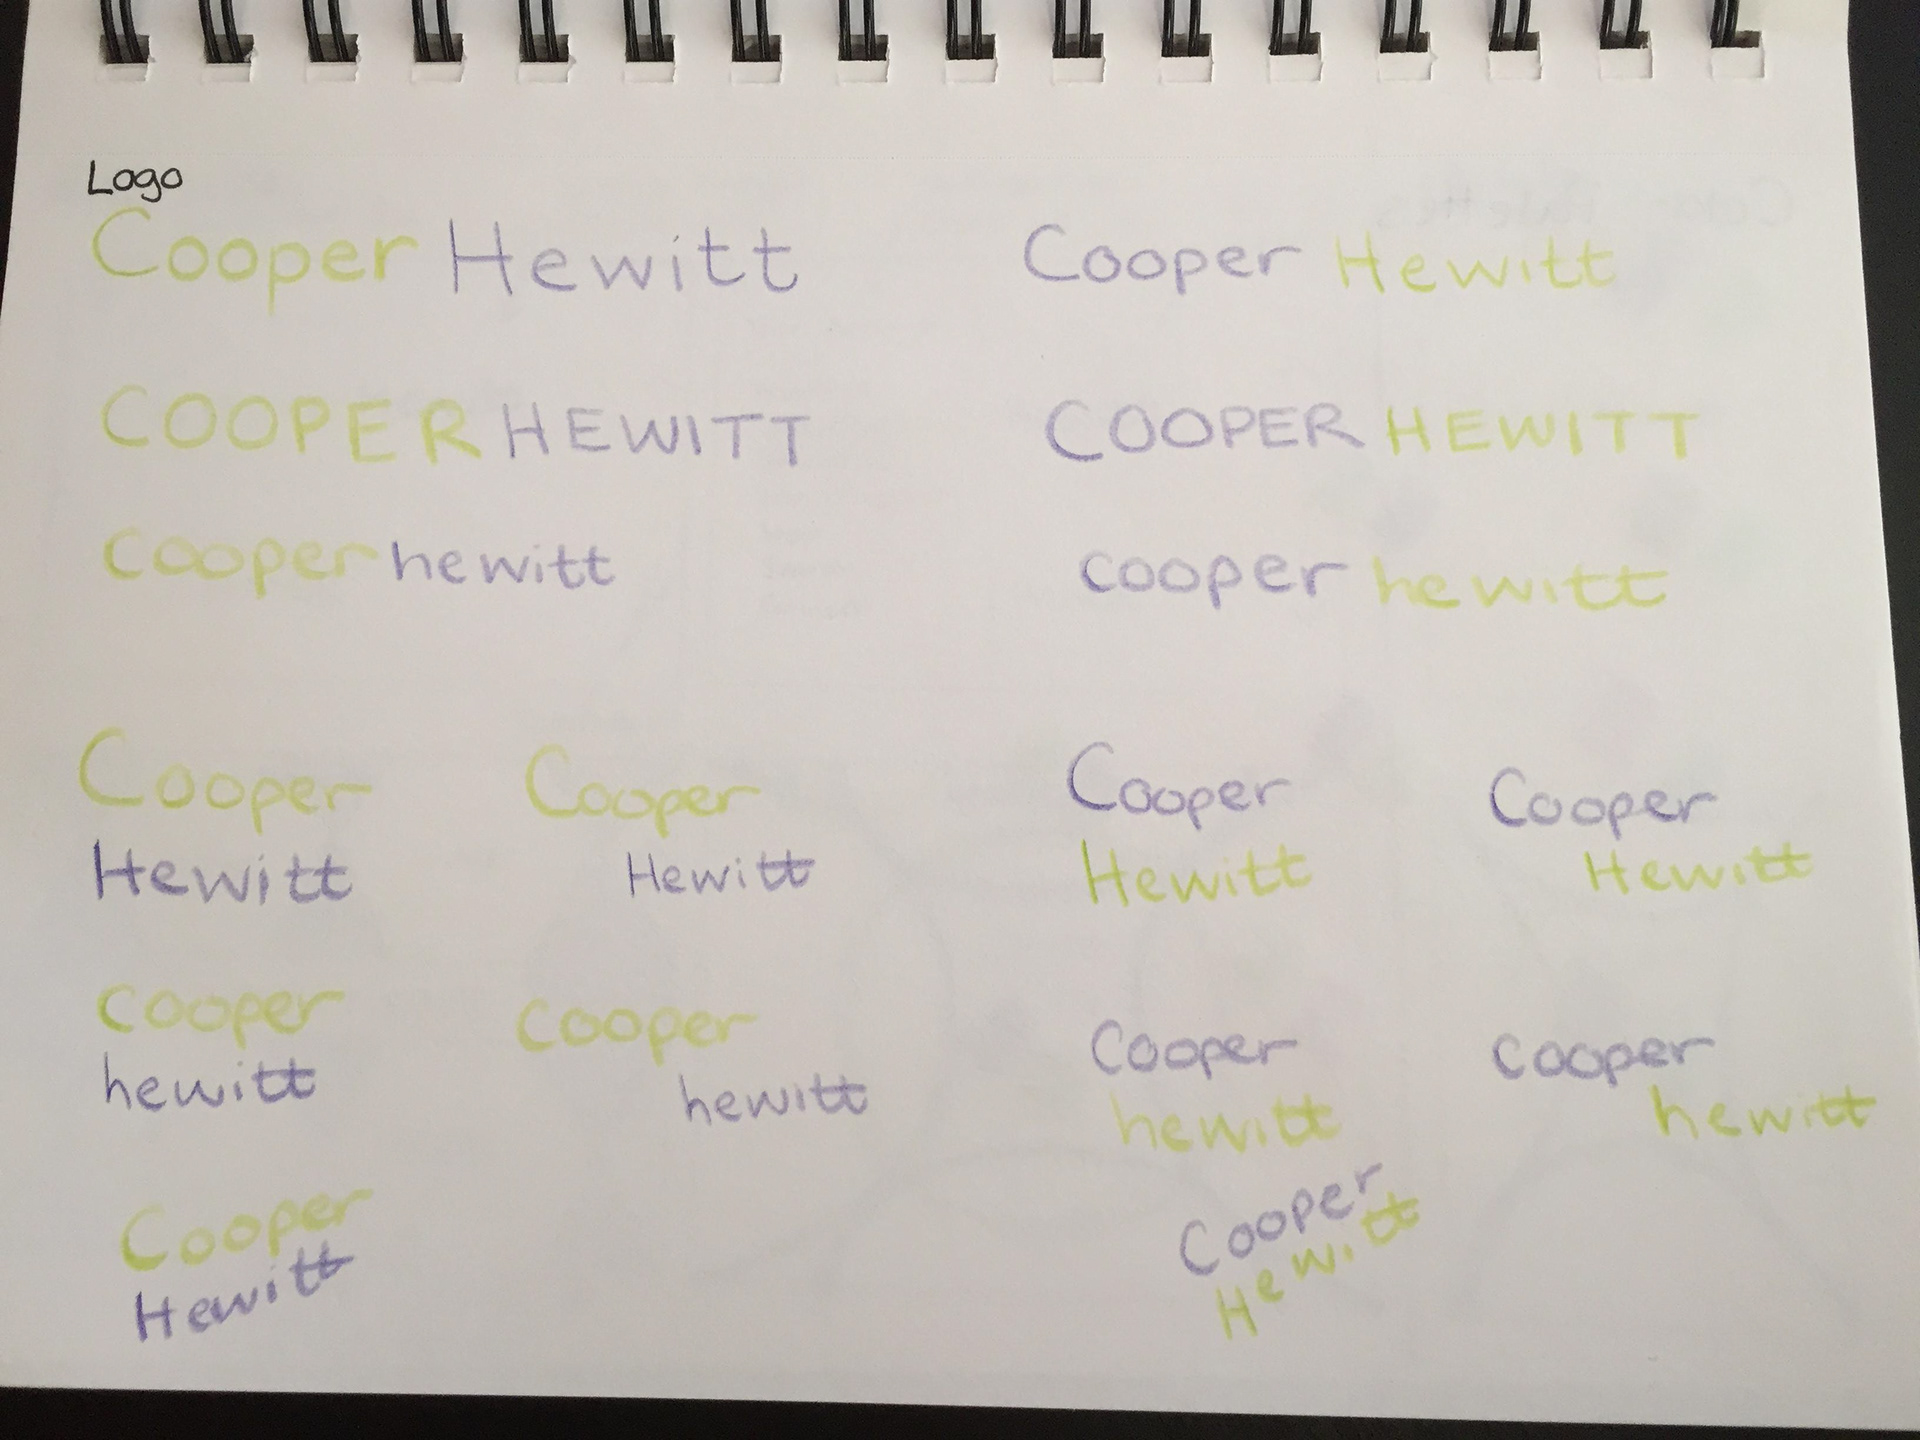 Logo
Cooper Hewitt
Cooper Hewitt
COOPER HEWITT
COOPER HEWITT
cooper hewitt
cooper hewitt
Cooper
Hewitt
Cooper
Hewitt
Cooper
Hewitt
Cooper
Hewitt
cooper
hewitt
cooper
hewitt
cooper
hewitt
cooper
hewitt
Cooper
Hewitt
Cooper
Hewitt